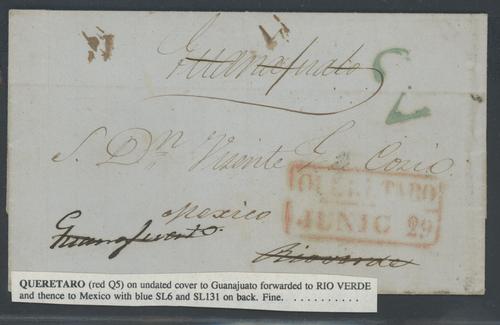 Guanajuato
S. Dn Visente G. de Cosio.
QUERETARO
JUNIO 29
Mexico
Guanajuato.
Rioverde
QUERETARO (red Q5) on undated cover to Guanajuato forwarded to RIO VERDE
and thence to Mexico with blue SL6 and SL131 on back. Fine. . . . . . . . . . .